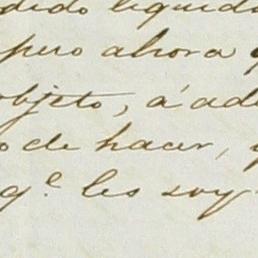 dido liquid
pero ahora
objeto, á ad
o de hacer,
q.e les soy